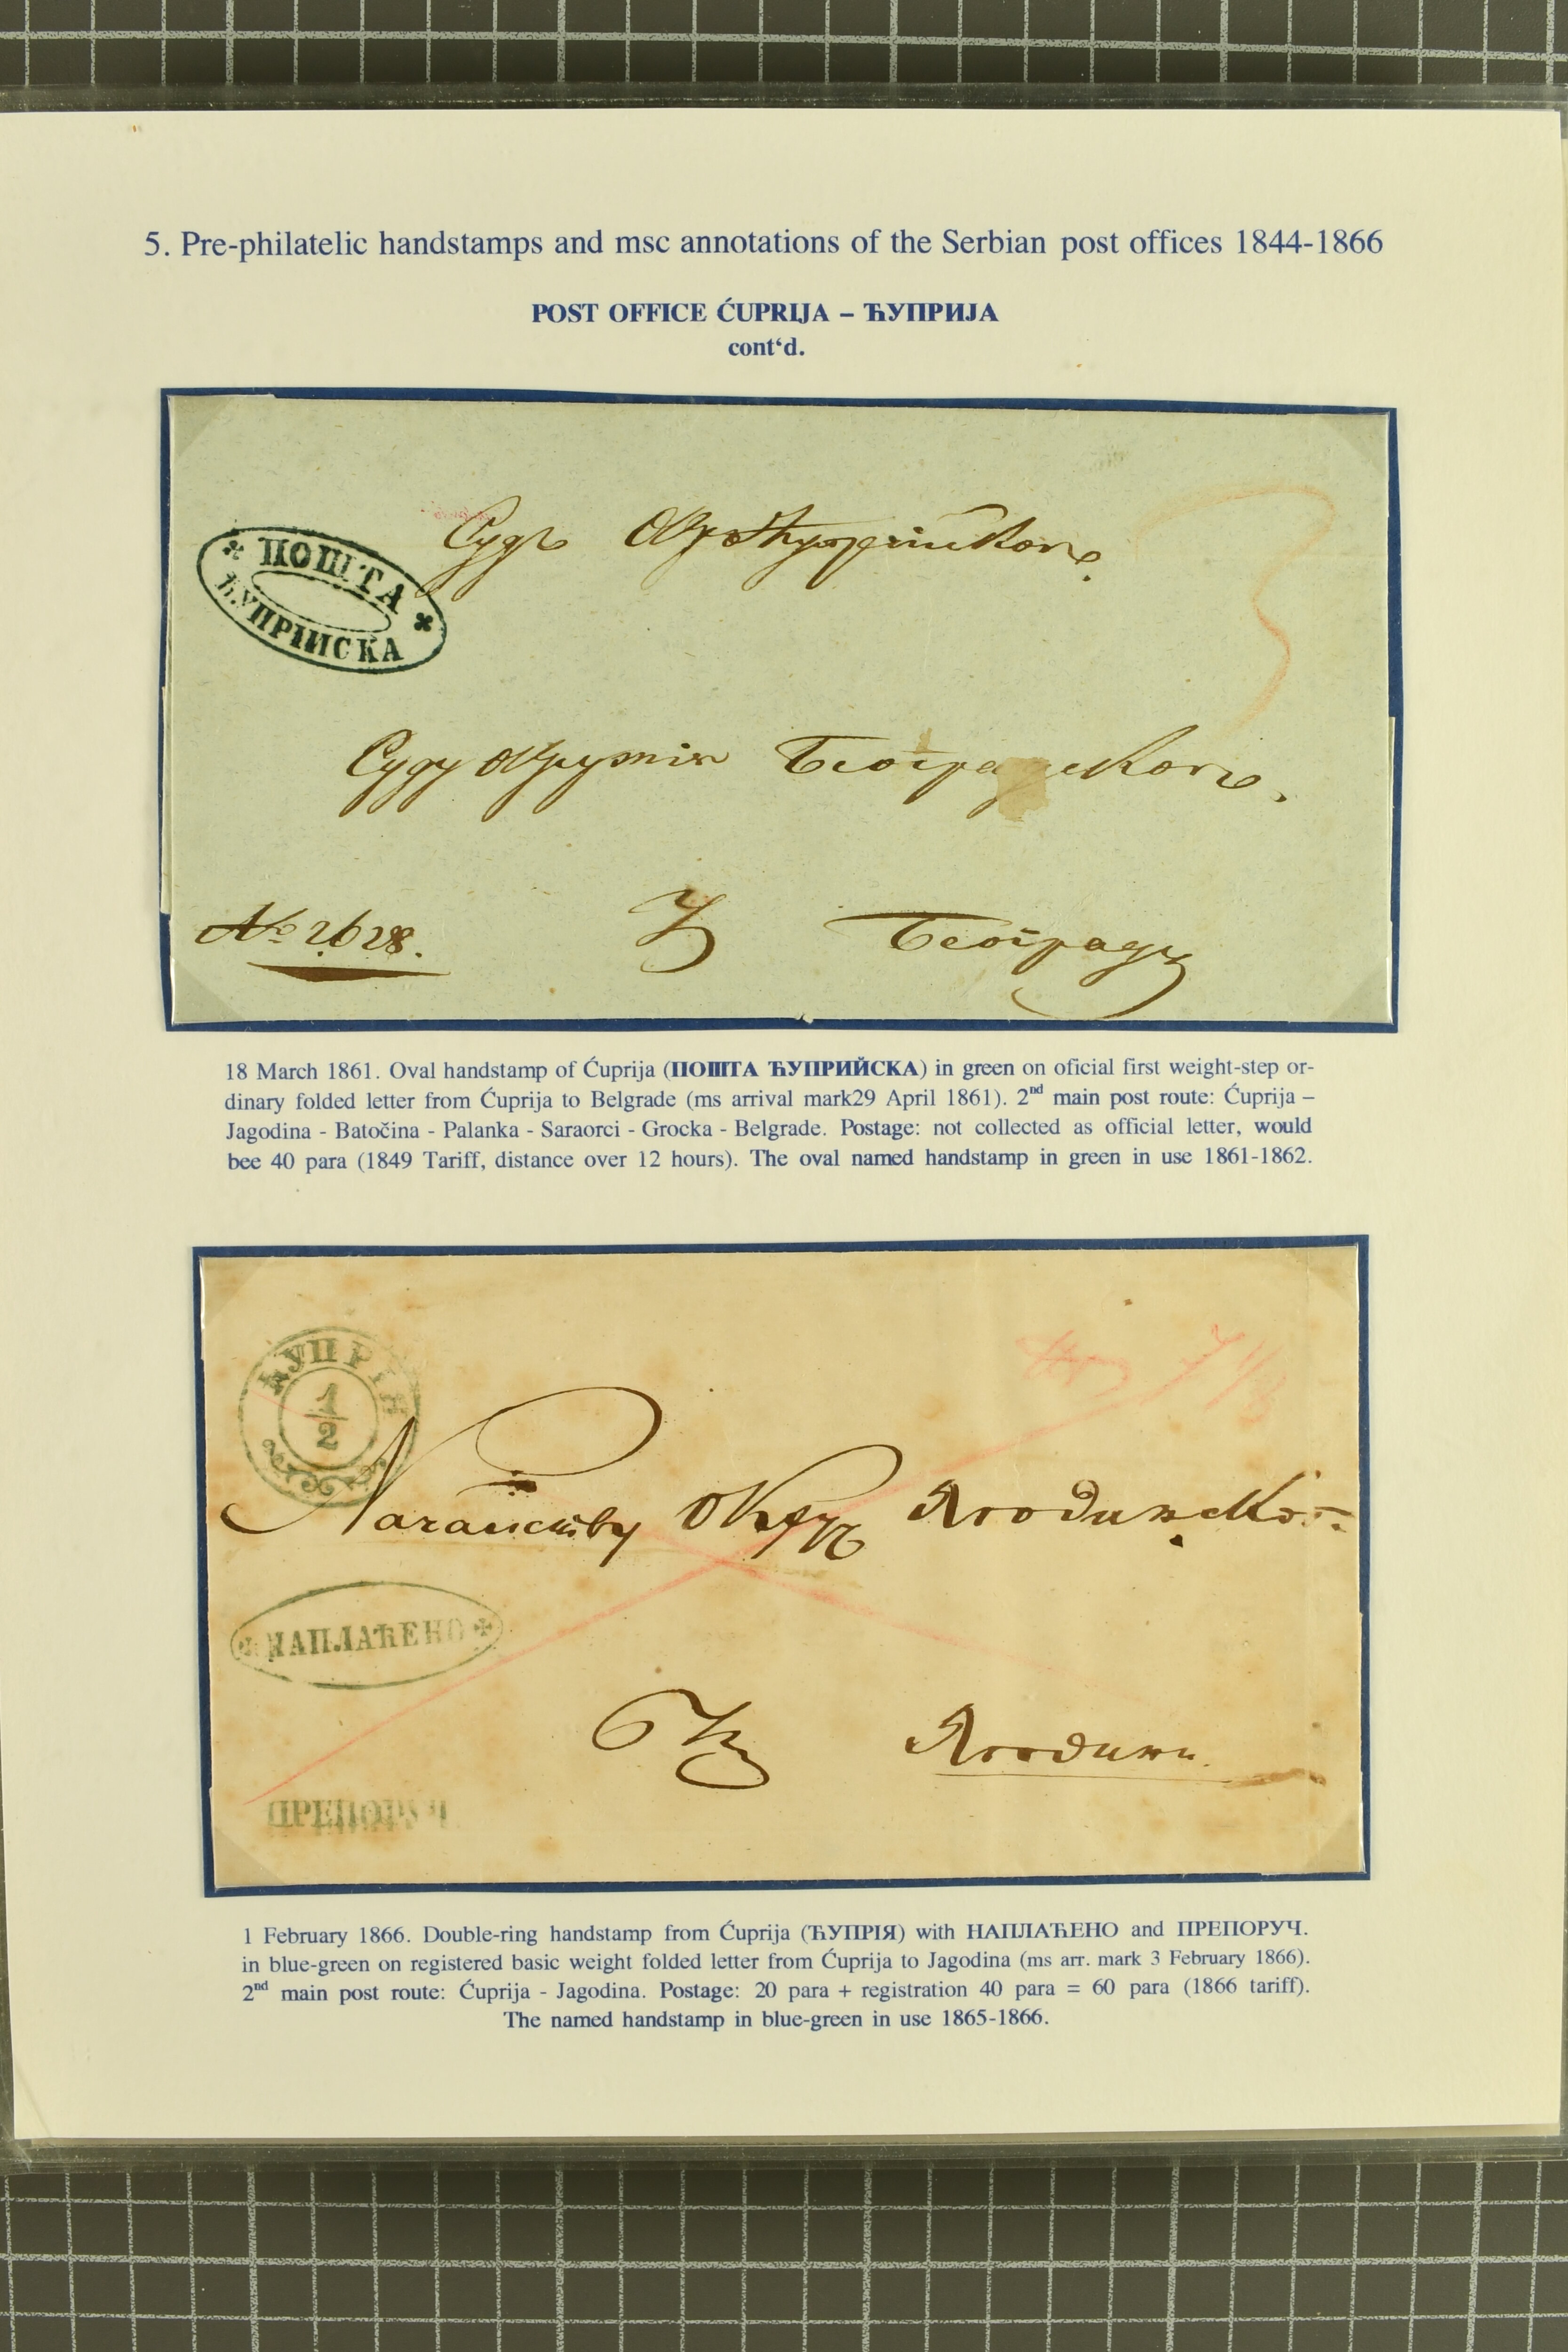 5. Pre-philatelic handstamps and msc annotations of the Serbian post offices 1844-1866
POST OFFICE ĆUPRIJA – ЋУПРИЈА
cont‘d.
Судъ
ПОШТА
ЋУПРІИСКА
Суду Окружія Београдскогъ.
№ 2628.
У Београдъ
18 March 1861. Oval handstamp of Ćuprija (ПОШТА ЋУПРИЙСКА) in green on oficial first weight-step or-
dinary folded letter from Ćuprija to Belgrade (ms arrival mark29 April 1861). 2nd main post route: Ćuprija –
Jagodina - Batočina - Palanka - Saraorci - Grocka - Belgrade. Postage: not collected as official letter, would
bee 40 para (1849 Tariff, distance over 12 hours). The oval named handstamp in green in use 1861-1862.
ЋУПРІЯ
1/2
Началству Окруж Ягодинско
НАПЛАЋЕНО
Ягодини.
ПРЕПОРУЧ
1 February 1866. Double-ring handstamp from Ćuprija (ЋУПРІЯ) with НАПЛАЋЕНО and ПРЕПОРУЧ.
in blue-green on registered basic weight folded letter from Ćuprija to Jagodina (ms arr. mark 3 February 1866).
2nd main post route: Ćuprija - Jagodina. Postage: 20 para + registration 40 para = 60 para (1866 tariff).
The named handstamp in blue-green in use 1865-1866.